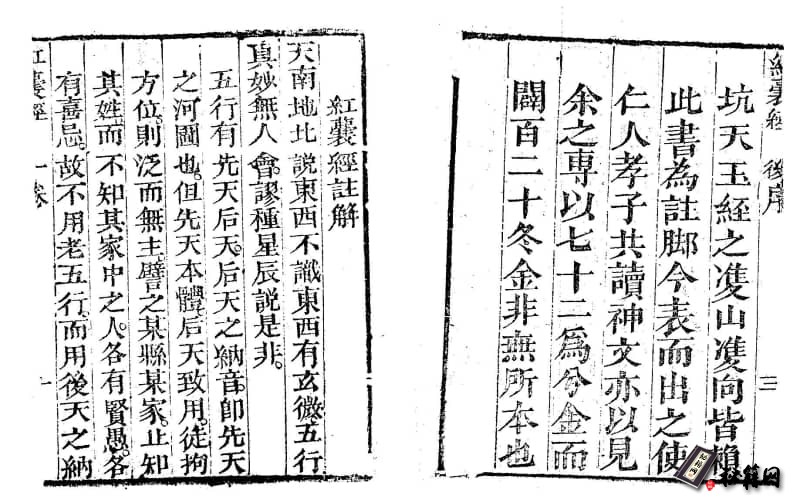 紅囊經 後序 三
坑天玉經之䨇山䨇向皆賴
此書為註脚今表而出之使
仁人孝子共讀神文亦以見
余之專以七十二爲分金而
闢百二十冬金非無所本也
紅囊經註解
天南地北說東西不識東西有玄微五行
真妙無人會謬種星辰説是非
五行有先天后天后天之納音卽先天
之河圖也但先天本體后天致用徒拘
方位則泛而無主譬之某縣某家止知
其姓而不知其家中之人各有賢愚各
有喜忌故不用老五行而用後天之納
紅囊經 一卷 一
秘籍网